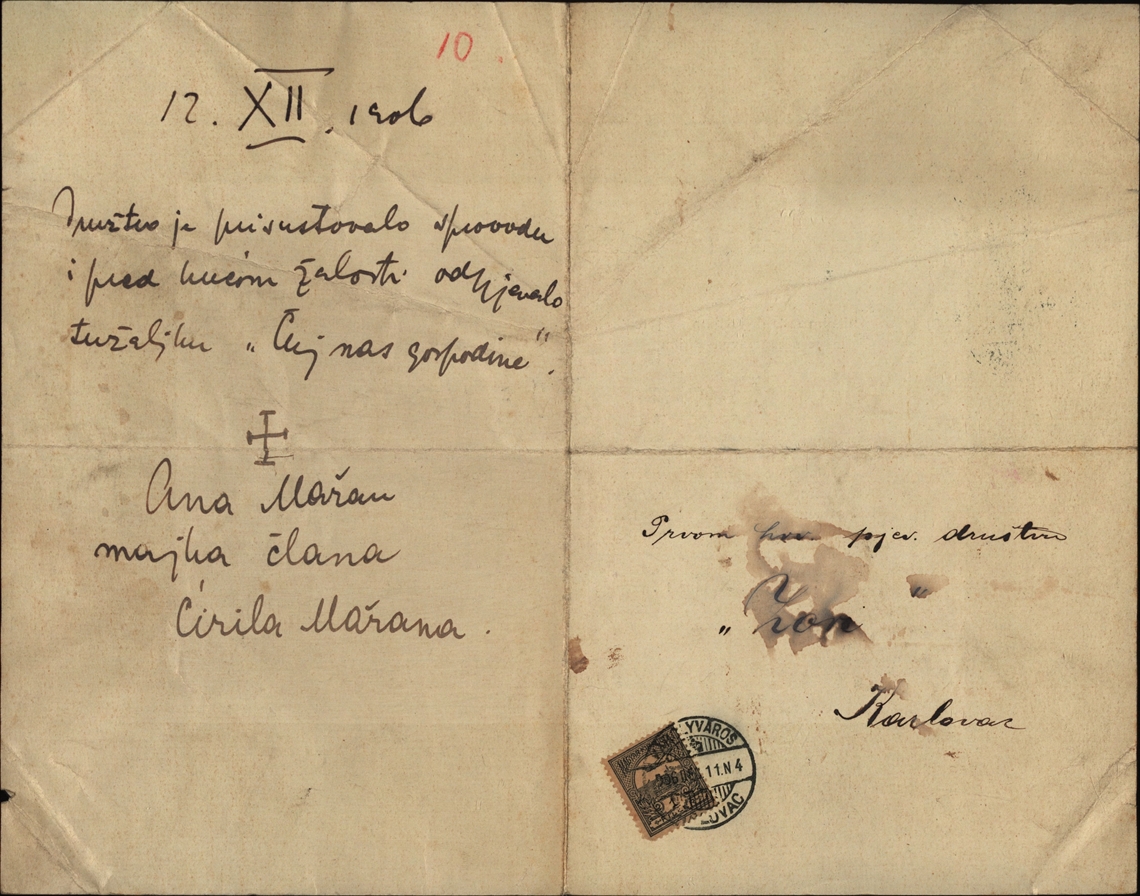 10.
12. XII. 1906
Društvo je prisustovalo sprovodu
i pred kućom žalosti odpjevalo
tužaljku „Čuj nas gospodine".
Ana Mařan
majka člana
Ćirila Mařana.
Prvom hrv. pjev. društvu
„Zora"
Karlovac
LYVÁROS
906 DEC 11. N 4
LOVAC